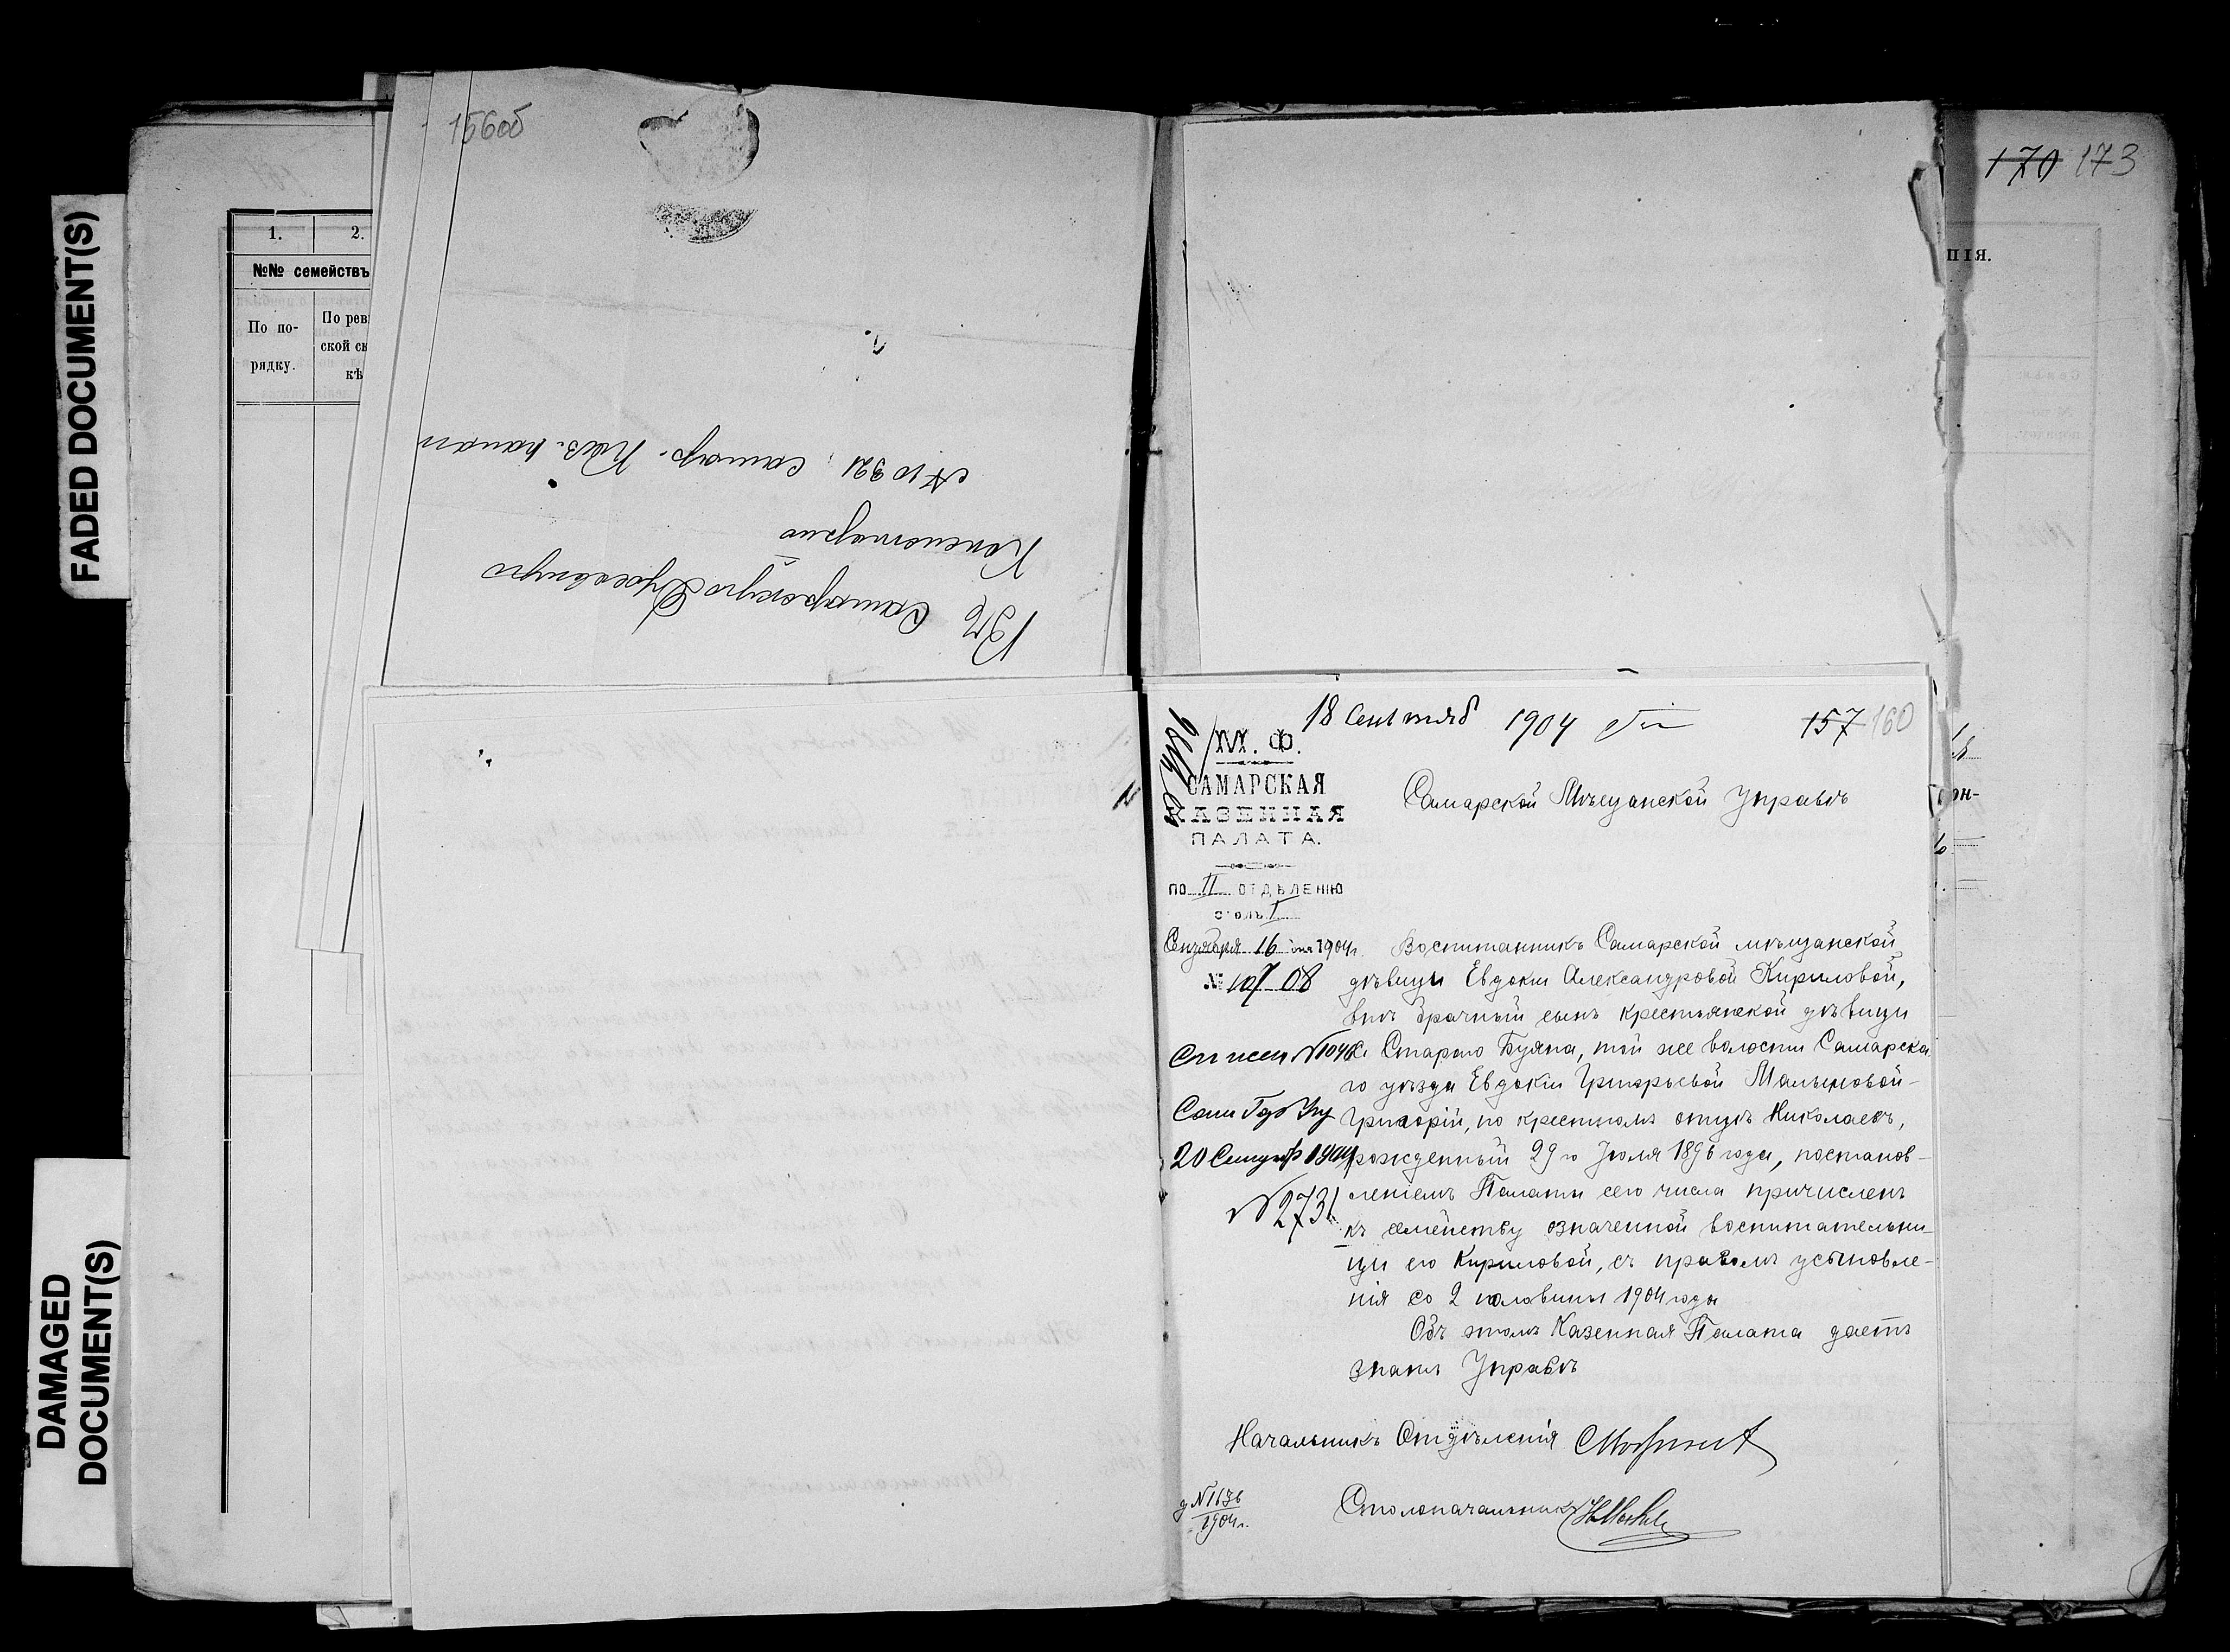 FADED DOCUMENT(S)
DAMAGED
DOCUMENT(S)
1.
2.
№№ семействъ
По по-
рядку.
По рев
ской ск
кѣ
156об
Въ Самарскую Духовную
Консисторію
№ 10321 Самар. Каз. палат
170 173
пія.
18 Сентяб 1904
157 160
М. Ф.
САМАРСКАЯ
КАЗЕННАЯ
ПАЛАТА.
ПО II ОТДѢЛЕНІЮ
столъ I
Сентября 16 дня 1904 г.
№ 10708
Самарской Мѣщанской Управѣ
Воспитанникъ Самарской мѣщанской
дѣвицы Евдокіи Александровой Кириловой,
внѣ брачный сынъ крестьянской дѣвицы
с. Стараго Буяна, той же волости Самарска
го уѣзда Евдокіи Григорьевой Малышовой-
Григорій, по крестномъ отцѣ Николаевъ,
рожденный 29 го Іюля 1896 года, постанов-
леніемъ Палаты сего числа причисленъ
къ семейству означенной воспитательни-
цы его Кириловой, съ правомъ усыновле-
нія со 2 половины 1904 года
Объ этомъ Казенная Палата даетъ
знать Управѣ
20 Сентяб 1904
№ 2731
Начальникъ Отдѣленія
Столоначальникъ
д № 1636
1904 г.